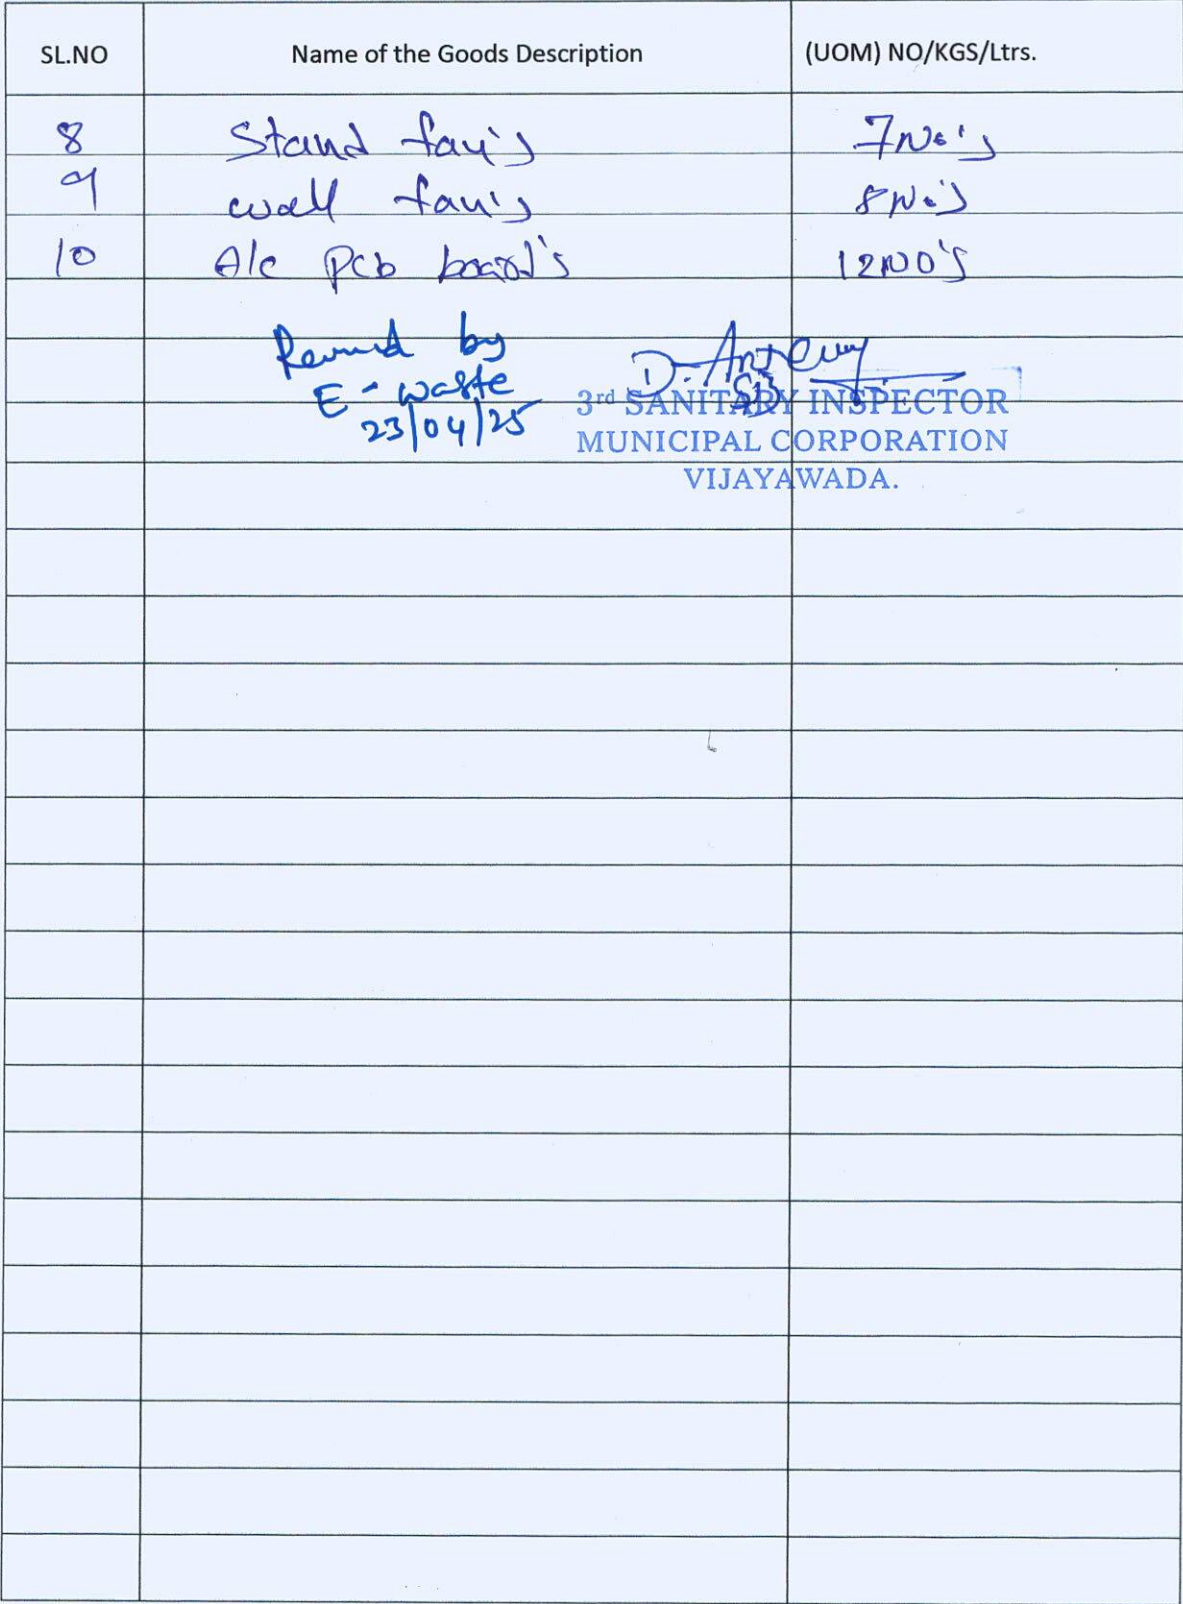 SL.NO Name of the Goods Description (UOM) NO/KGS/Ltrs.
8 Stand fan's 7No's
9 wall fan's 8No's
10 A/c pcb board's 12NO's
by
E-waste
23/04/25
3rd SANITARY INSPECTOR
MUNICIPAL CORPORATION
VIJAYAWADA.